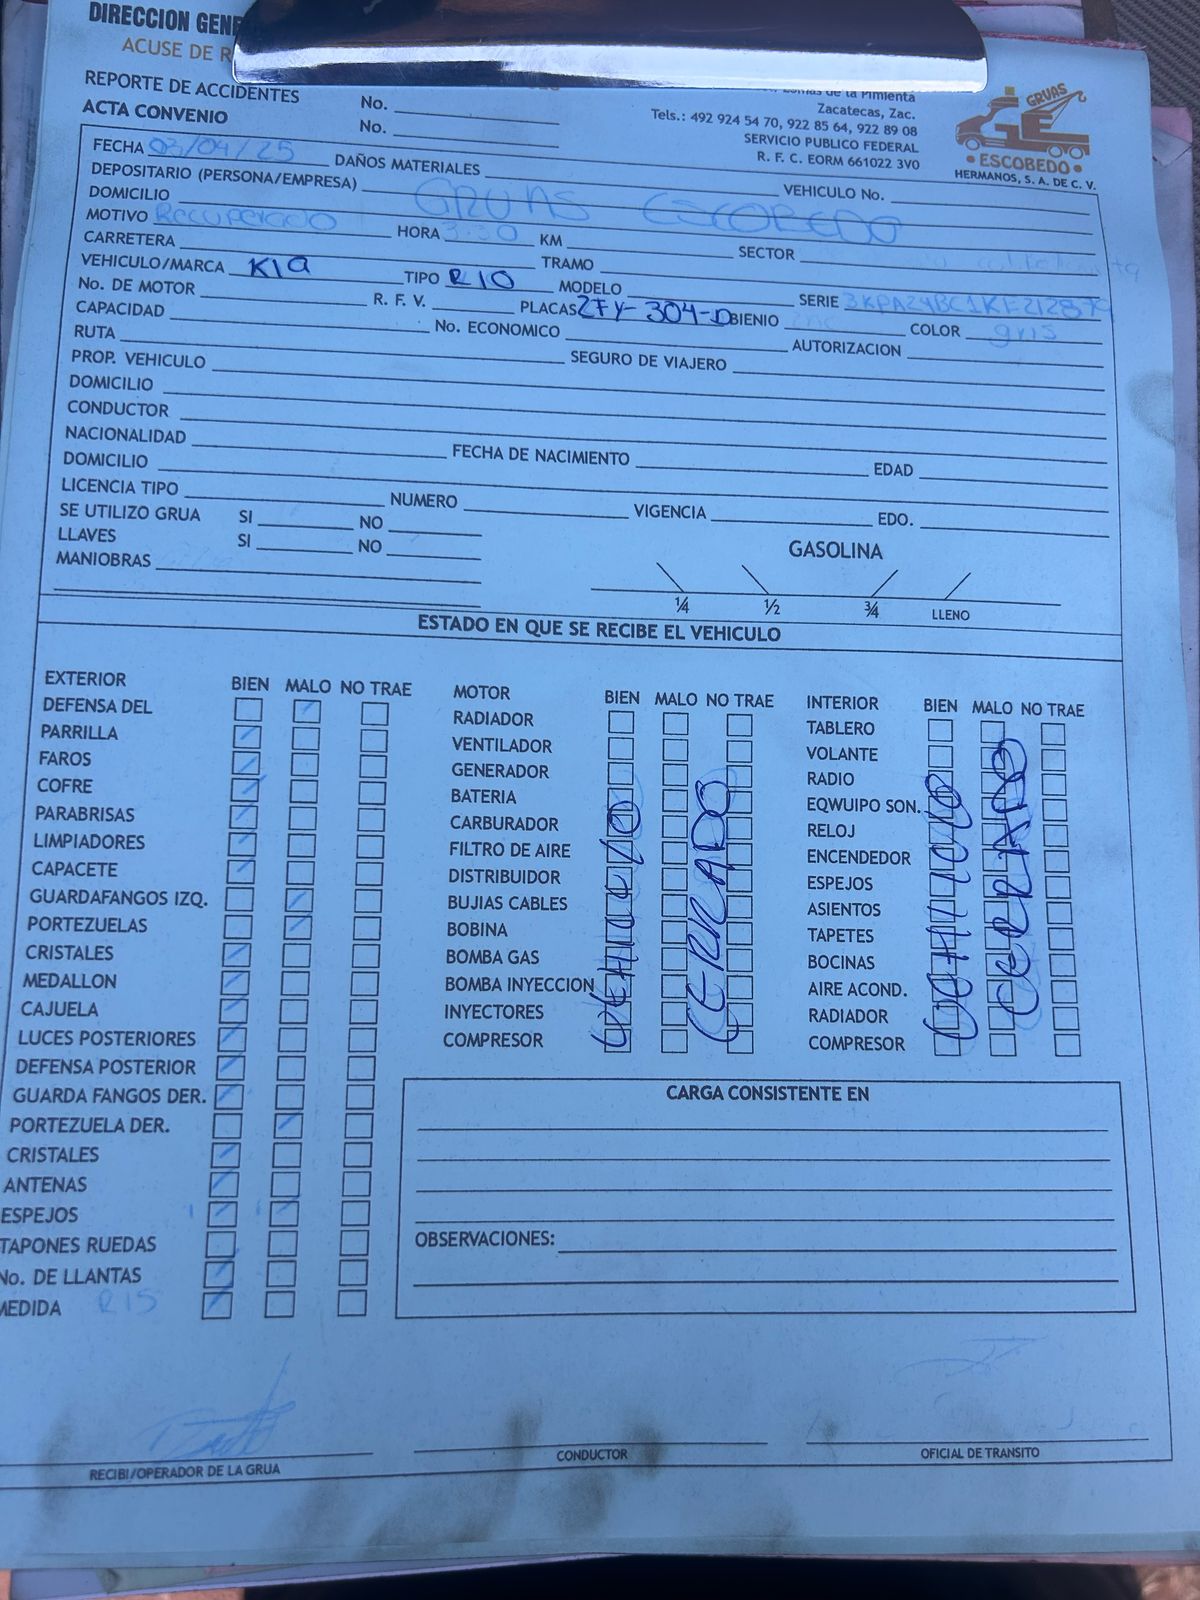 DIRECCION GENE
ACUSE DE R
REPORTE DE ACCIDENTES No.
ACTA CONVENIO No.
Lomas de la Pimienta
Zacatecas, Zac.
Tels.: 492 924 54 70, 922 85 64, 922 89 08
SERVICIO PUBLICO FEDERAL
R. F. C. EORM 661022 3V0
GRUAS
GE
• ESCOBEDO •
HERMANOS, S. A. DE C. V.
FECHA 03/04/25 DAÑOS MATERIALES VEHICULO No.
DEPOSITARIO (PERSONA/EMPRESA) GRUAS ESCOBEDO
DOMICILIO
MOTIVO Recuperado HORA 3:30 KM SECTOR
CARRETERA TRAMO
VEHICULO/MARCA KIA TIPO RIO MODELO SERIE 3KPA24BC1KE212879
No. DE MOTOR R. F. V. PLACAS ZFY-304-D BIENIO COLOR gris
CAPACIDAD No. ECONOMICO AUTORIZACION
RUTA SEGURO DE VIAJERO
PROP. VEHICULO
DOMICILIO
CONDUCTOR
NACIONALIDAD FECHA DE NACIMIENTO EDAD
DOMICILIO
LICENCIA TIPO NUMERO VIGENCIA EDO.
SE UTILIZO GRUA SI NO
LLAVES SI NO
MANIOBRAS
GASOLINA
1/4 1/2 3/4 LLENO
ESTADO EN QUE SE RECIBE EL VEHICULO
EXTERIOR BIEN MALO NO TRAE
DEFENSA DEL
PARRILLA
FAROS
COFRE
PARABRISAS
LIMPIADORES
CAPACETE
GUARDAFANGOS IZQ.
PORTEZUELAS
CRISTALES
MEDALLON
CAJUELA
LUCES POSTERIORES
DEFENSA POSTERIOR
GUARDA FANGOS DER.
PORTEZUELA DER.
CRISTALES
ANTENAS
ESPEJOS
TAPONES RUEDAS
No. DE LLANTAS
MEDIDA R15
MOTOR BIEN MALO NO TRAE
RADIADOR
VENTILADOR
GENERADOR
BATERIA
CARBURADOR
FILTRO DE AIRE
DISTRIBUIDOR
BUJIAS CABLES
BOBINA
BOMBA GAS
BOMBA INYECCION
INYECTORES
COMPRESOR
VEHICULO
CERRADO
INTERIOR BIEN MALO NO TRAE
TABLERO
VOLANTE
RADIO
EQWUIPO SON.
RELOJ
ENCENDEDOR
ESPEJOS
ASIENTOS
TAPETES
BOCINAS
AIRE ACOND.
RADIADOR
COMPRESOR
VEHICULO
CERRADO
CARGA CONSISTENTE EN
OBSERVACIONES:
RECIBI/OPERADOR DE LA GRUA
CONDUCTOR
OFICIAL DE TRANSITO